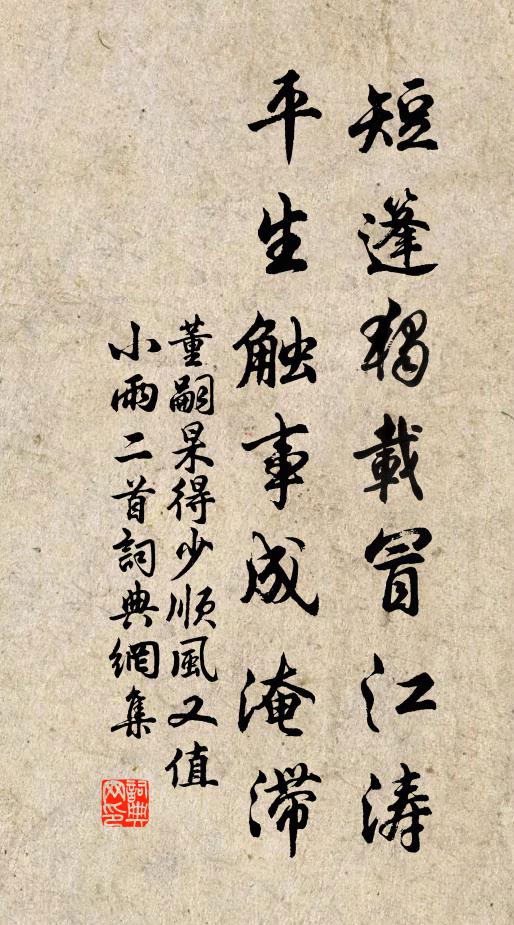 短篷獨載冒江涛
平生触事成淹滞
董嗣杲得少順風又值
小雨二首詞典網集
詞典網印